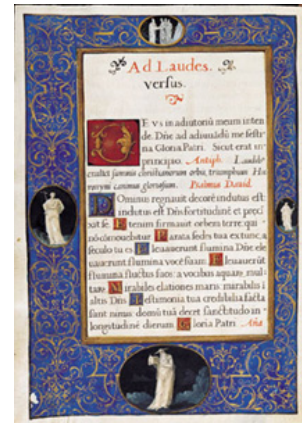 Ad Laudes.
versus.
DE VS in adiutoriū meum inten
de. Dñe ad adiuuādū me festi
na Gloria Patri. Sicut erat in
principio. Antiph. Laudde
crucis summi christianorum orbis, triumphum Hie
ronymi canimus gloriosum. Psalmus Dauid.
Dominus regnauit decorē indutus est:
indutus est Dñs fortitudinē et preci
xit se. Etenim firmauit orbem terre qui
nō cōmouebitur Parata sedes tua ex tunc a
seculo tu es Eleuauerunt flumina Dñe ele
uauerunt flumina vocē suam. Eleuauerūt
flumina fluctus suos: a vocibus aquarū mul
tarū Mirabiles elationes maris: mirabilis i
altis Dñs Testimonia tua credibilia facta
sunt nimis: domū tuā decet sanctitudo in
longitudinē dierum. Gloria Patri Aña